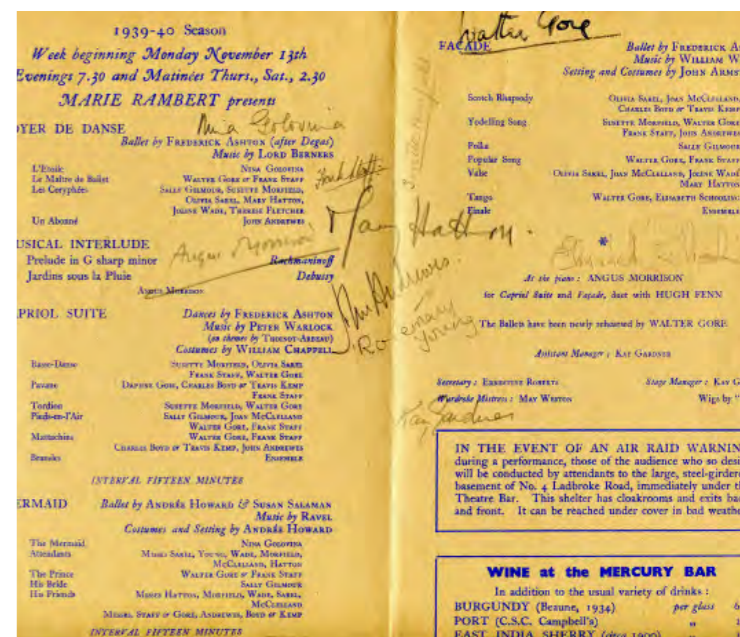 1939-40 Season
Week beginning Monday November 13th
Evenings 7.30 and Matinées Thurs., Sat., 2.30
MARIE RAMBERT presents
OYER DE DANSE
Nina Golovina
Ballet by FREDERICK ASHTON (after Degas)
Music by LORD BERNERS
L'Etoile NINA GOLOVINA
Le Maître de Ballet WALTER GORE or FRANK STAFF
Les Coryphées SALLY GILMOUR, SUSETTE MORFIELD,
OLIVIA SAREL, MARY HATTON,
JOLENE WADE, THERESE FLETCHER
Un Abonné JOHN ANDREWES
Frank Staff
USICAL INTERLUDE
Angus Morrison
Prelude in G sharp minor Rachmaninoff
Jardins sous la Pluie Debussy
ANGUS MORRISON
Mary Hatton.
John Andrewes.
Rosemary Young
PRIOL SUITE
Dances by FREDERICK ASHTON
Music by PETER WARLOCK
(on themes by THOINOT-ARBEAU)
Costumes by WILLIAM CHAPPELL
Basse-Danse SUSETTE MORFIELD, OLIVIA SAREL
FRANK STAFF, WALTER GORE
Pavane DAPHNE GOW, CHARLES BOYD or TRAVIS KEMP
FRANK STAFF
Tordion SUSETTE MORFIELD, WALTER GORE
Pieds-en-l'Air SALLY GILMOUR, JOAN McCLELLAND
WALTER GORE, FRANK STAFF
Mattachins WALTER GORE, FRANK STAFF
CHARLES BOYD or TRAVIS KEMP, JOHN ANDREWES
Bransles ENSEMBLE
INTERVAL FIFTEEN MINUTES
ERMAID
Ballet by ANDRÉE HOWARD & SUSAN SALAMAN
Music by RAVEL
Costumes and Setting by ANDRÉE HOWARD
The Mermaid NINA GOLOVINA
Attendants MISSES SAREL, YOUNG, WADE, MORFIELD,
McCLELLAND, HATTON
The Prince WALTER GORE or FRANK STAFF
His Bride SALLY GILMOUR
His Friends MISSES HATTON, MORFIELD, WADE, SAREL,
McCLELLAND
MESSRS. STAFF or GORE, ANDREWES, BOYD or KEMP
INTERVAL FIFTEEN MINUTES
Walter Gore
FAÇADE
Ballet by FREDERICK AS
Music by WILLIAM W
Setting and Costumes by JOHN ARMST
Scotch Rhapsody OLIVIA SAREL, JOAN McCLELLAND,
CHARLES BOYD or TRAVIS KEMP
Yodelling Song SUSETTE MORFIELD, WALTER GORE
FRANK STAFF, JOHN ANDREWES
Polka SALLY GILMOUR
Popular Song WALTER GORE, FRANK STAFF
Valse OLIVIA SAREL, JOAN McCLELLAND, JOLENE WADE
MARY HATTON
Tango WALTER GORE, ELISABETH SCHOOLING
Finale ENSEMBLE
*
At the piano : ANGUS MORRISON
for Capriol Suite and Façade, duet with HUGH FENN
The Ballets have been newly rehearsed by WALTER GORE
Assistant Manager : KAY GARDNER
Secretary : ERNESTINE ROBERTS Stage Manager : KAY G
Wardrobe Mistress : MAY WESTON Wigs by "
Kay Gardner
IN THE EVENT OF AN AIR RAID WARNIN
during a performance, those of the audience who so desi
will be conducted by attendants to the large, steel-girdere
basement of No. 4 Ladbroke Road, immediately under th
Theatre Bar. This shelter has cloakrooms and exits bac
and front. It can be reached under cover in bad weathe
WINE at the MERCURY BAR
In addition to the usual variety of drinks :
BURGUNDY (Beaune, 1934) per glass 6
PORT (C.S.C. Campbell's) "
EAST INDIA SHERRY (circa 1900) "